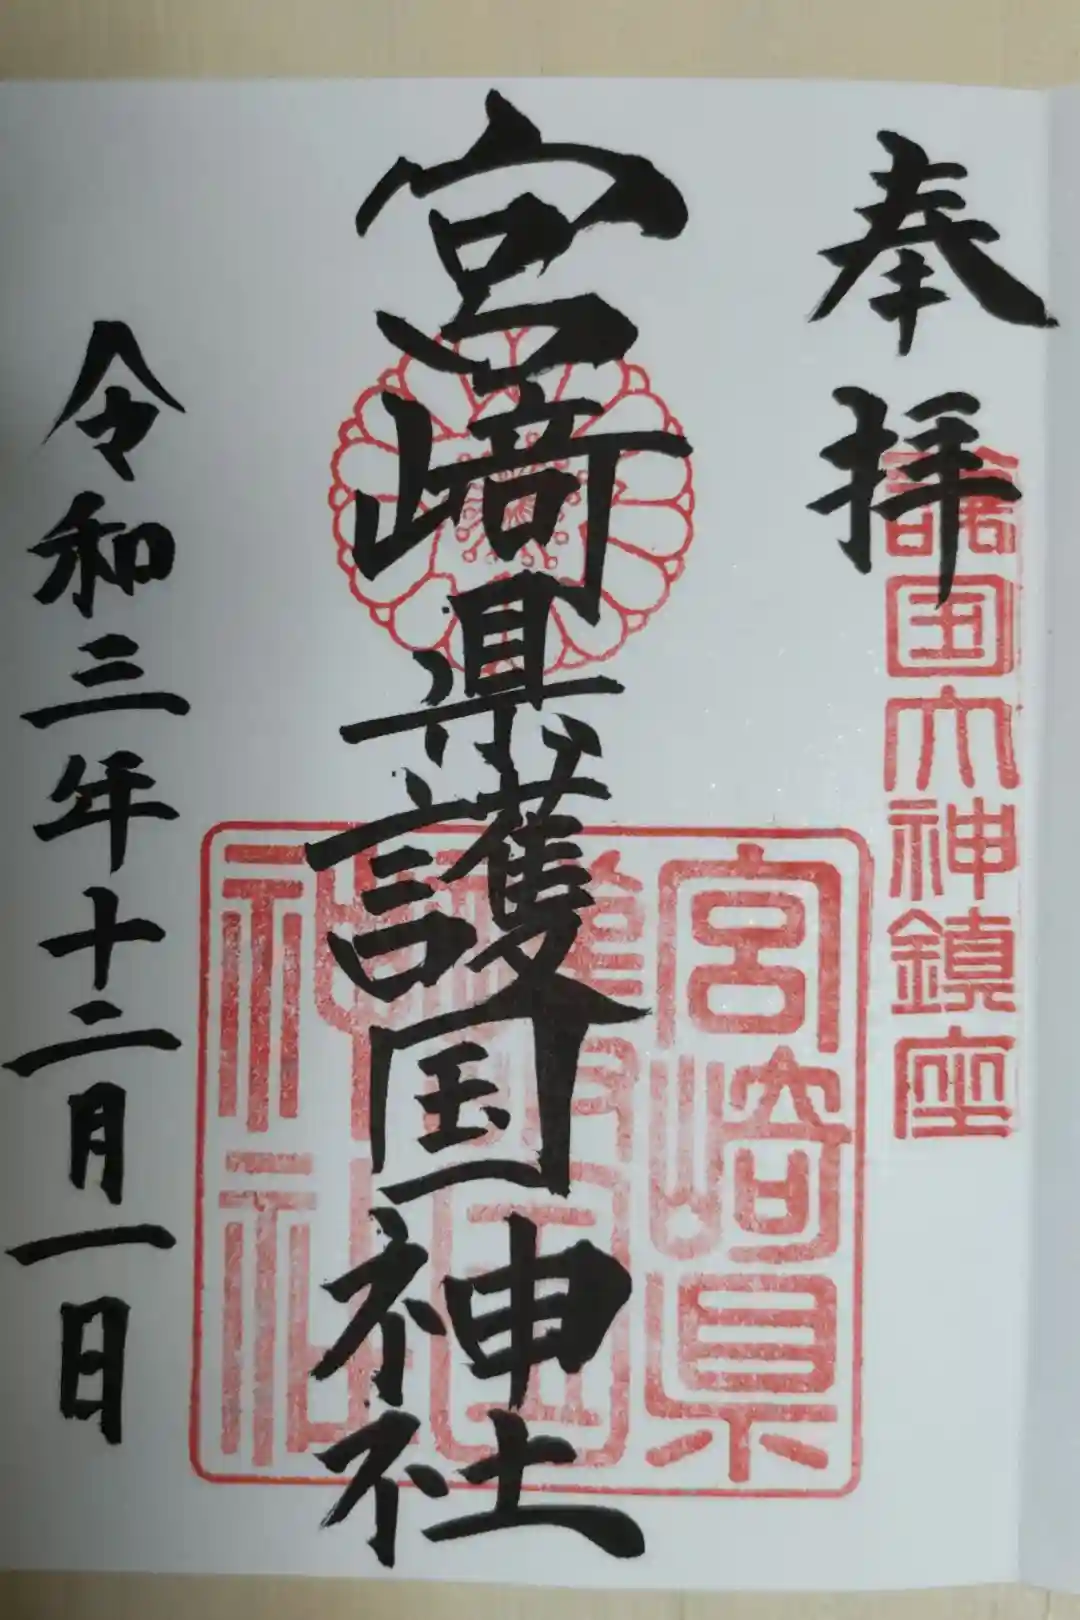 奉拝
諸国大神鎮座
宮崎県護国神社
宮崎県
護国
神社
令和三年十二月一日